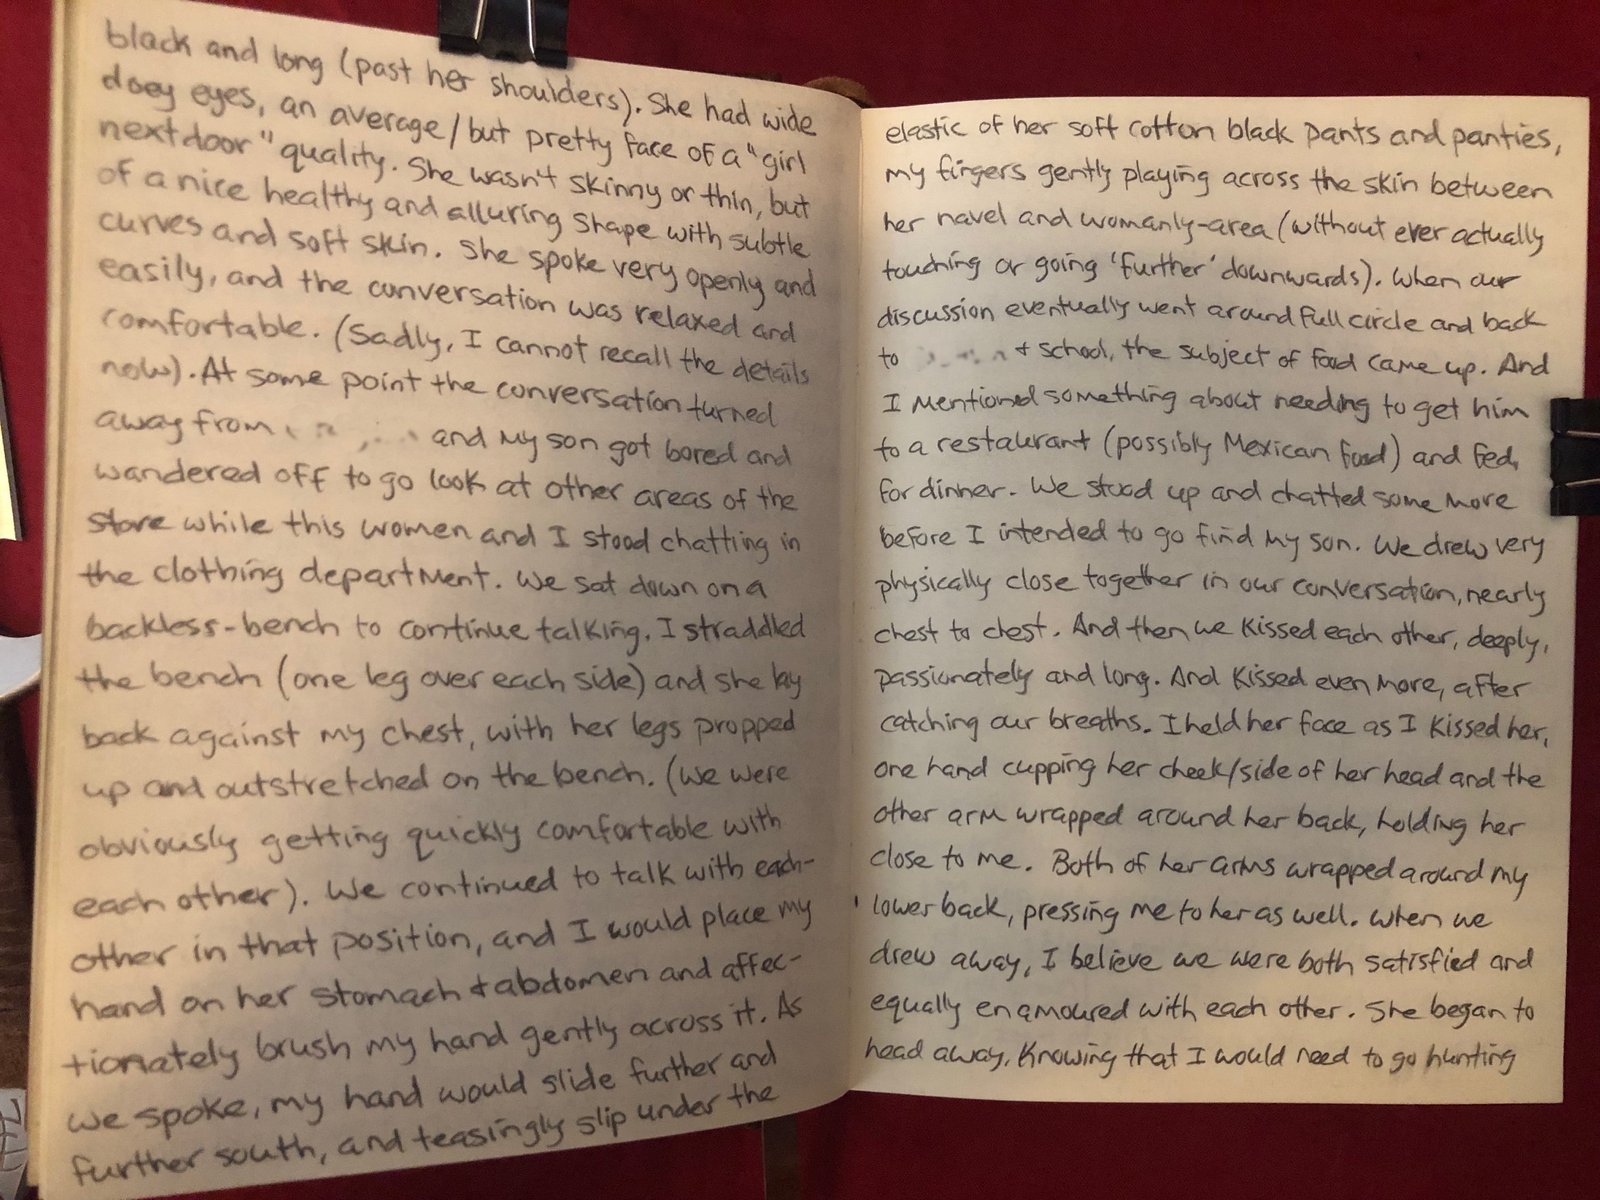 black and long (past her shoulders). She had wide
doey eyes, an average/but pretty face of a "girl
nextdoor" quality. She wasn't skinny or thin, but
of a nice healthy and alluring shape with subtle
curves and soft skin. She spoke very openly and
easily, and the conversation was relaxed and
comfortable. (Sadly, I cannot recall the details
now). At some point the conversation turned
away from and my son got bored and
wandered off to go look at other areas of the
store while this women and I stood chatting in
the clothing department. We sat down on a
backless-bench to continue talking. I straddled
the bench (one leg over each side) and she lay
back against my chest, with her legs propped
up and outstretched on the bench. (We were
obviously getting quickly comfortable with
each other). We continued to talk with each-
other in that position, and I would place my
hand on her stomach & abdomen and affec-
tionately brush my hand gently across it. As
we spoke, my hand would slide further and
further south, and teasingly slip under the
elastic of her soft cotton black pants and panties,
my fingers gently playing across the skin between
her navel and womanly-area (without ever actually
touching or going 'further' downwards). When our
discussion eventually went around full circle and back
to & school, the subject of food came up. And
I mentioned something about needing to get him
to a restaurant (possibly Mexican food) and fed,
for dinner. We stood up and chatted some more
before I intended to go find my son. We drew very
physically close together in our conversation, nearly
chest to chest. And then we kissed each other, deeply,
passionately and long. And kissed even more, after
catching our breaths. I held her face as I kissed her,
one hand cupping her cheek/side of her head and the
other arm wrapped around her back, holding her
close to me. Both of her arms wrapped around my
lower back, pressing me to her as well. When we
drew away, I believe we were both satisfied and
equally enamoured with each other. She began to
head away, knowing that I would need to go hunting